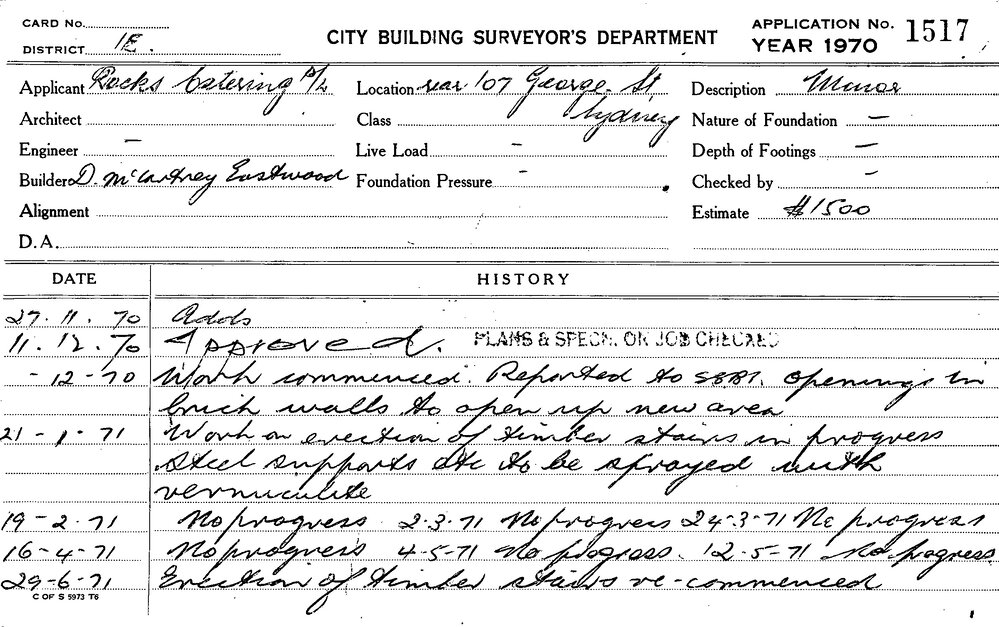 CARD No.
DISTRICT 1E.
CITY BUILDING SURVEYOR'S DEPARTMENT
APPLICATION No. 1517
YEAR 1970
Applicant Rocks Catering P/L
Location rear 107 George St Sydney
Description Minor
Architect
Class
Nature of Foundation —
Engineer —
Live Load -
Depth of Footings —
Builder D. McCartney Eastwood
Foundation Pressure -
Checked by -
Alignment
Estimate $1500
D.A.
DATE HISTORY
27.11.70 Adds
11.12.70 Approved. PLANS & SPECN. ON JOB CHECKED
- 12-70 Work commenced. Reported to SBBI. Openings in
brick walls to open up new area
21-1-71 Work on erection of timber stairs in progress
Steel supports etc to be sprayed with
vermiculite
19-2-71 No progress 2-3-71 No progress 24-3-71 No progress
16-4-71 No progress 4-5-71 No progress. 12-5-71 No progress.
29-6-71 Erection of timber stairs re-commenced
C OF S 5973 T6